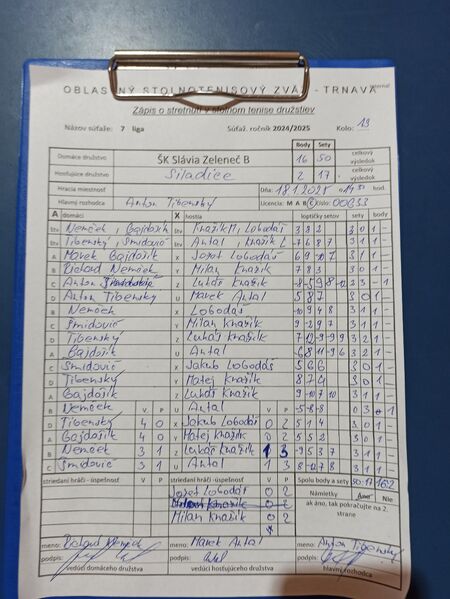 OBLASTNÝ STOLNOTENISOVÝ ZVÄZ - TRNAVA
Zápis o stretnutí v stolnom tenise družstiev
Názov súťaže: 7 liga Súťaž. ročník 2024/2025 Kolo: 13
Body Sety
Domáce družstvo ŠK Slávia Zeleneč B 16 50 celkový výsledok
Hosťujúce družstvo Siladice 2 17 celkový výsledok
Hracia miestnosť Dňa: 18.1.2025 o hod.
Hlavný rozhodca Anton Tibenský Licencia: M A B C Číslo: 00633
A domáci X hostia loptičky setov sety body
štv Nemček, Gajdošík štv Knažík M, Lobodáš 3 9 2 3 0 1 -
štv Tibenský, Šmidovič štv Antal, Knažík L -7 6 8 7 3 1 1 -
A Marek Gajdošík X Jozef Lobodáš 3 1 1 -
B Richard Nemček Y Milan Knažík 7 8 3 3 0 1 -
C Anton Z Lukáš Knažík - 1
D Anton Tibenský U Marek Antal 5 8 7 3 0 1 -
B Nemček X Lobodáš -10 9 4 8 3 1 1 -
C Šmidovič Y Milan Knažík 9 -2 9 7 3 1 1 -
D Tibenský Z Lukáš Knažík 3 2 1 -
A Gajdošík U Antal 3 2 1 -
C Šmidovič X Jakub Lobodáš 5 6 6 3 0 1 -
D Tibenský Y Matej Knažík 8 7 4 3 0 1 -
A Gajdošík Z Lukáš Knažík 3 1 1 -
B Nemček V P U Antal V P -5 -8 -8 0 3 - 1
D Tibenský 4 0 X Jakub Lobodáš 0 2 5 1 4 3 0 1 -
A Gajdošík 4 0 Y Matej Knažík 0 2 5 5 2 3 0 1 -
B Nemček 3 1 Z Lukáš Knažík 1 3 -9 5 3 7 3 1 1 -
C Šmidovič 3 1 U Antal 1 3 3 1 1 -
striedaní hráči - úspešnosť striedaní hráči - úspešnosť Spolu body a sety 50:17 16:2
Jozef Lobodáš 0 2
Námietky Áno Nie
ak áno, tak pokračujte na 2. strane
Milan Knažík 0 2
meno: Richard Nemček meno: Marek Antal meno: Anton Tibenský
podpis: podpis: podpis:
vedúci domáceho družstva vedúci hosťujúceho družstva hlavný rozhodca